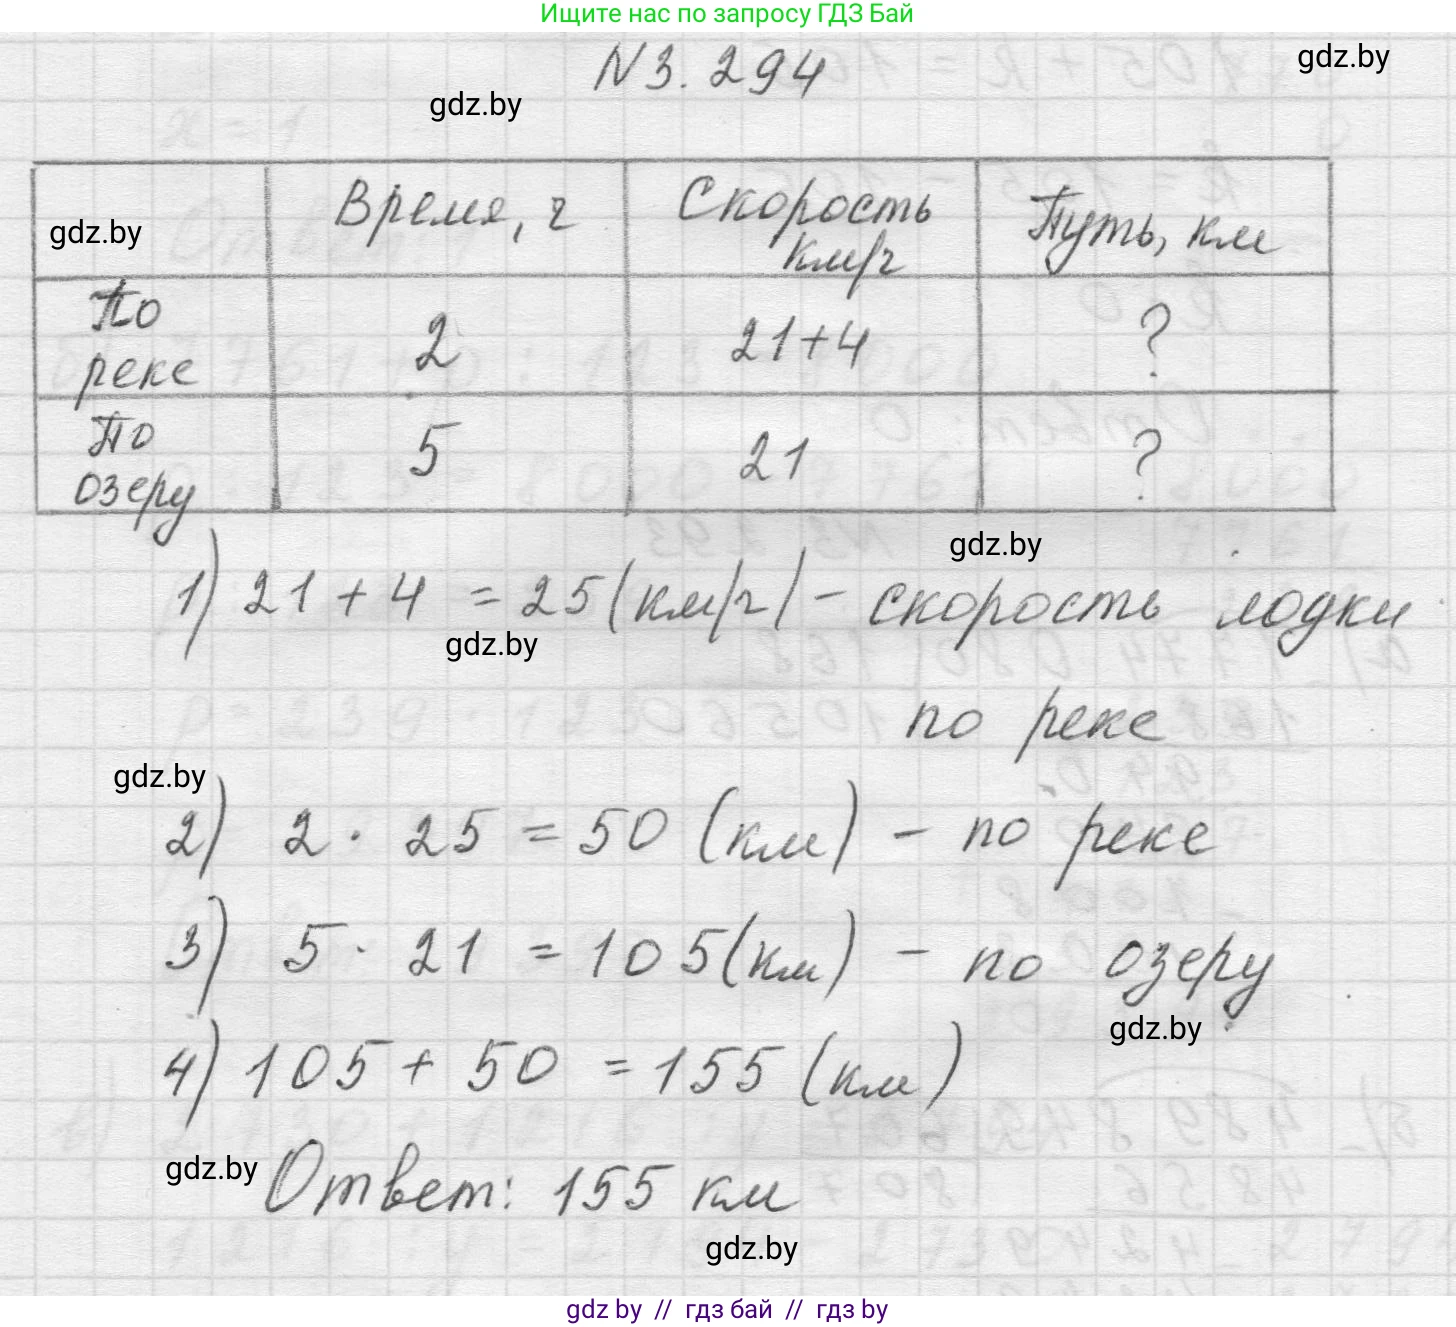 Ищите нас по запросу ГДЗ Бай
N 3. 294
gdz.by
gdz.by
gdz.by
Время, ч
Скорость км/ч
Путь, км
По реке
2
21+4
?
По озеру
5
21
?
gdz.by
1) 21 + 4 = 25 (км/ч) - скорость лодки
gdz.by
по реке
gdz.by
2) 2 · 25 = 50 (км) - по реке
3) 5 · 21 = 105 (км) - по озеру
gdz.by
4) 105 + 50 = 155 (км)
gdz.by
Ответ: 155 км
gdz.by
gdz by // гдз бай // гдз by